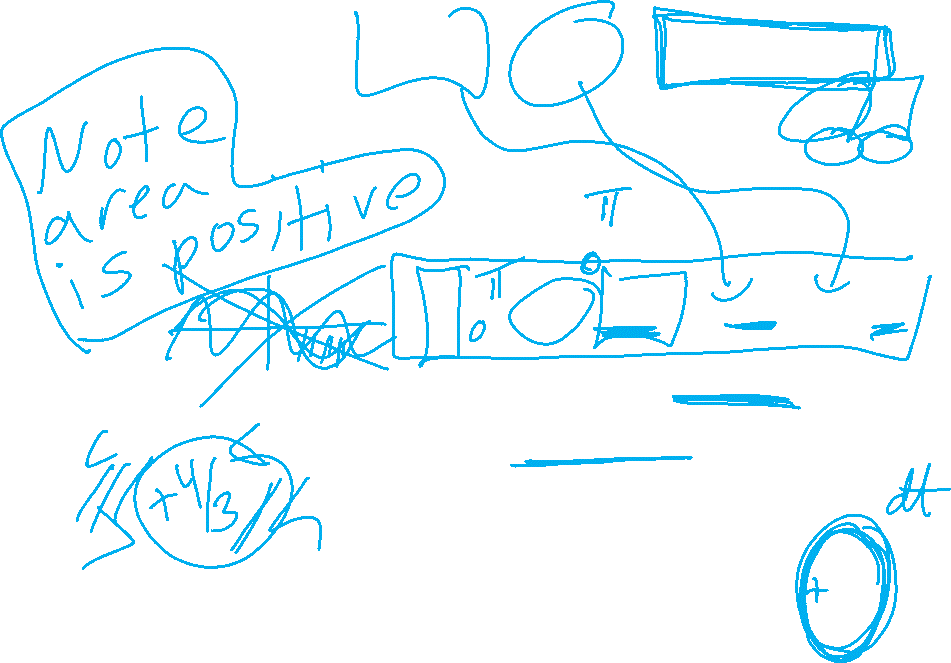 Note
area
is positive
π
π
0
+4/3
dt
+